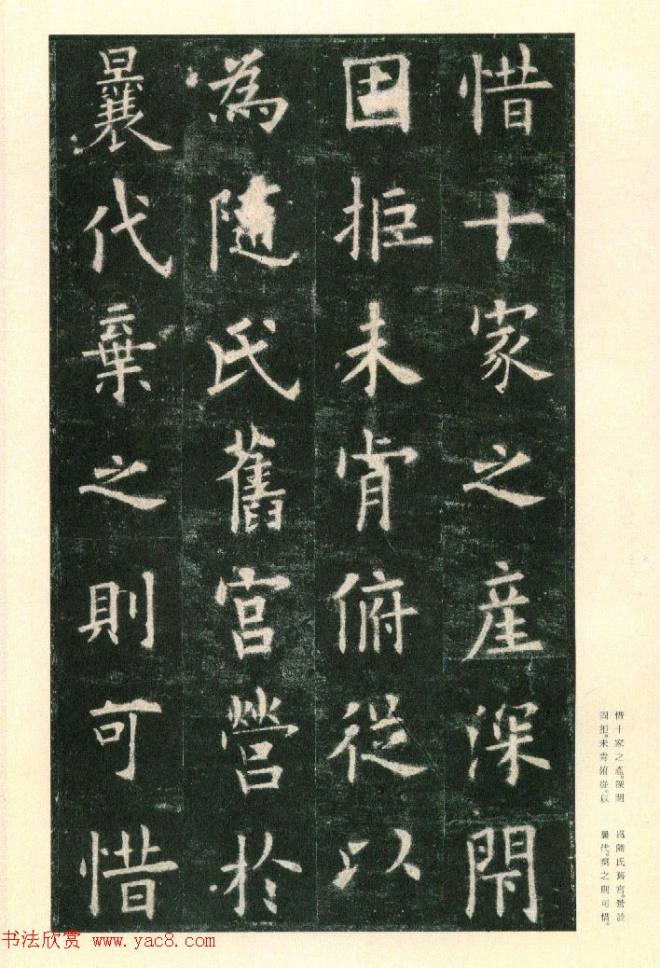 惜十家之產深閇
固拒未肯俯從以
為隨氏舊宮營於
曩代棄之則可惜
惜十家之產。深閉
固拒。未肯俯從。以
爲隨氏舊宮。營於
曩代。棄之則可惜。
书法欣赏 www.yac8.com